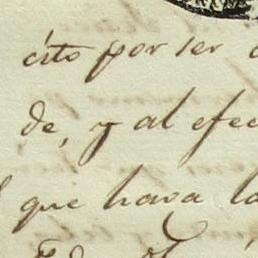 cito por ser
de, y al efec
que haya la